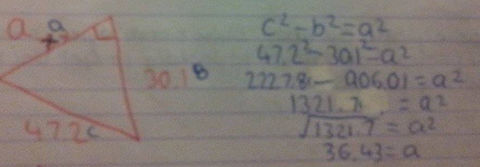 a a
30.1 B
47.2 c
c² - b² = a²
47.2² - 30.1² = a²
2227.8 - 906.01 = a²
1321.7 = a²
√1321.7 = a²
36.43 = a